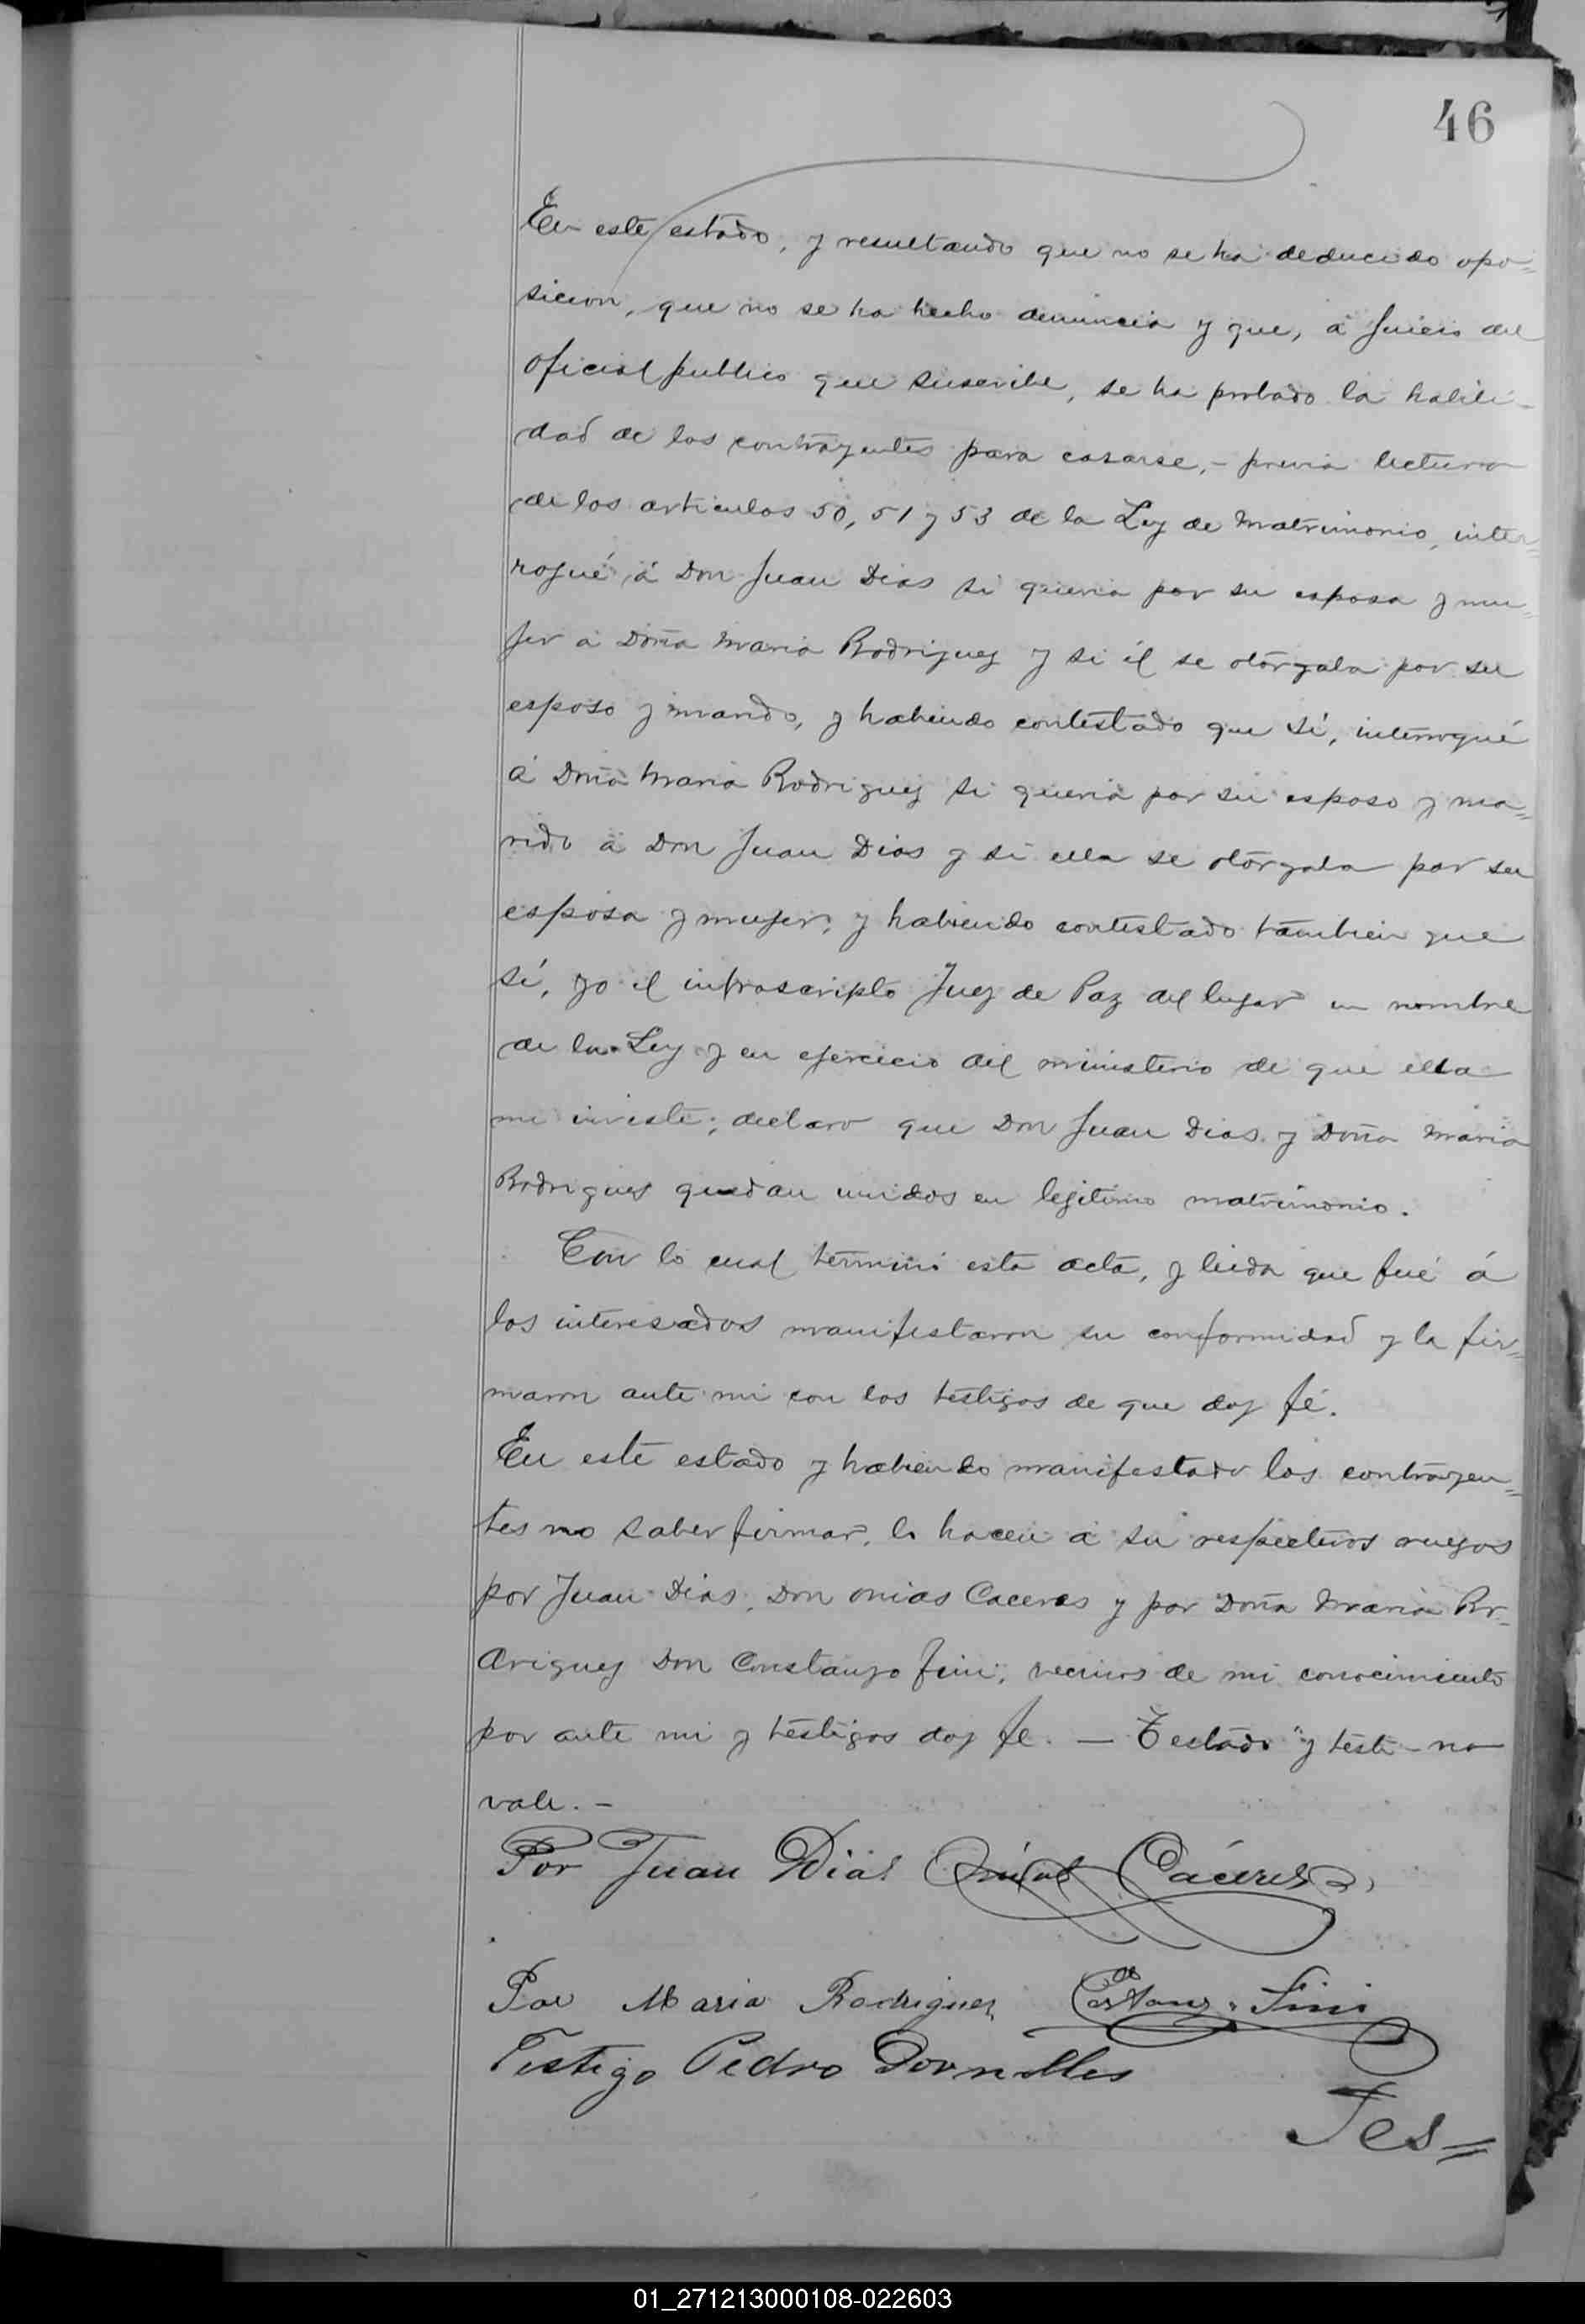 46
En este estado, y resultando que no se ha deducido opo=
sicion, que no se ha hecho denuncia y que, á juicio del
oficial publico que suscribe, se ha probado la habili-
dad de los contrayentes para casarse,- previa lectura
de los articulos 50, 51 y 53 de la Ley de Matrimonio, inter=
rogué á Don Juan Dias si queria por su esposa y mu=
jer á Doña Maria Rodriguez y si él se otorgaba por su
esposo y marido, y habiendo contestado que sí, interrogué
á Doña Maria Rodriguez si queria por su esposo y ma=
rido á Don Juan Dias y si ella se otorgaba por su
esposa y mujer, y habiendo contestado tambien que
sí, yo el infrascripto Juez de Paz del lugar en nombre
de la Ley y en ejercicio del ministerio de que ella
me inviste; declaro que Don Juan Dias y Doña Maria
Rodrigues quedan unidos en legitimo matrimonio.
Con lo cual terminó esta acta, y leida que fué á
los interesados manifestaron su conformidad y la fir=
maron ante mi con los testigos de que doy fé.
En este estado y habiendo manifestado los contrayen=
tes no saber firmar, lo hacen á su respectivos ruegos
por Juan Dias, Don Onias Caceres y por Doña Maria Ro-
driguez Don Constanzo Fini, vecinos de mi conocimiento
por ante mi y testigos doy fe. — Testado "y testi - no
vale. -
Por Juan Dias Onias Cáceres
Por Maria Rodriguez Costanzo Fini
Testigo Pedro Dornelles
Tes=
01_271213000108-022603